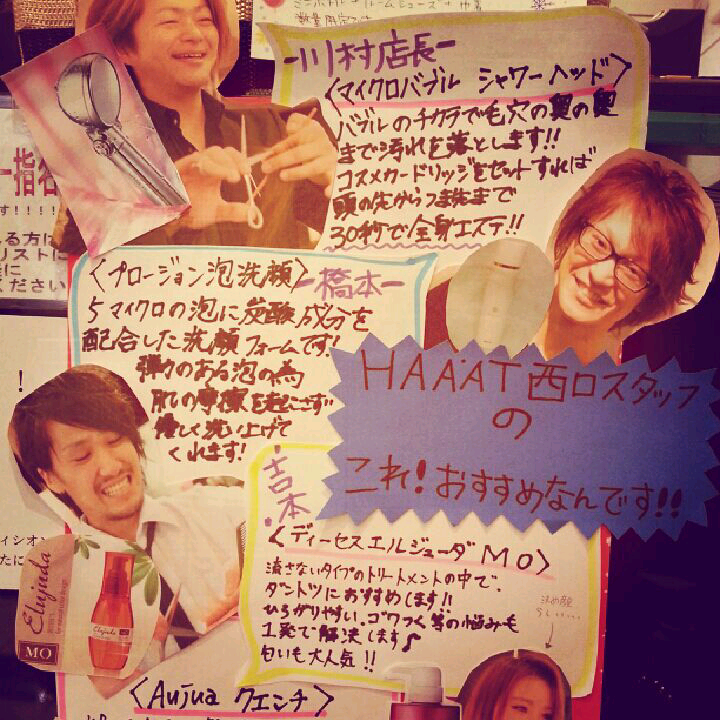 数量限定
-川村店長-
〈マイクロバブル シャワーヘッド〉
バブルのチカラで毛穴の奥の奥
まで汚れを落とします!!
コスメカートリッジをセットすれば
頭の先からつま先まで
30秒で全身エステ!!
指名
す!!!!
る方は
リストに
に
ください
〈プロージョン泡洗顔〉
-橋本-
5マイクロの泡に炭酸成分を
配合した洗顔フォームです!
弾力のある泡の為
肌の摩擦を起こさず
優しく洗い上げて
くれます!
HAAAT西口スタッフ
の
これ!おすすめなんです!!
・吉本・
〈ディーセスエルジューダMO〉
流さないタイプのトリートメントの中で、
ダントツにおすすめします!!
ひろがりやすい、ゴワつく等の悩みも
1発で解決します♪
匂いも大人気!!
決め顔
らしい…
Elujuda
MO
Elujuda
〈Aujua クエンチ〉